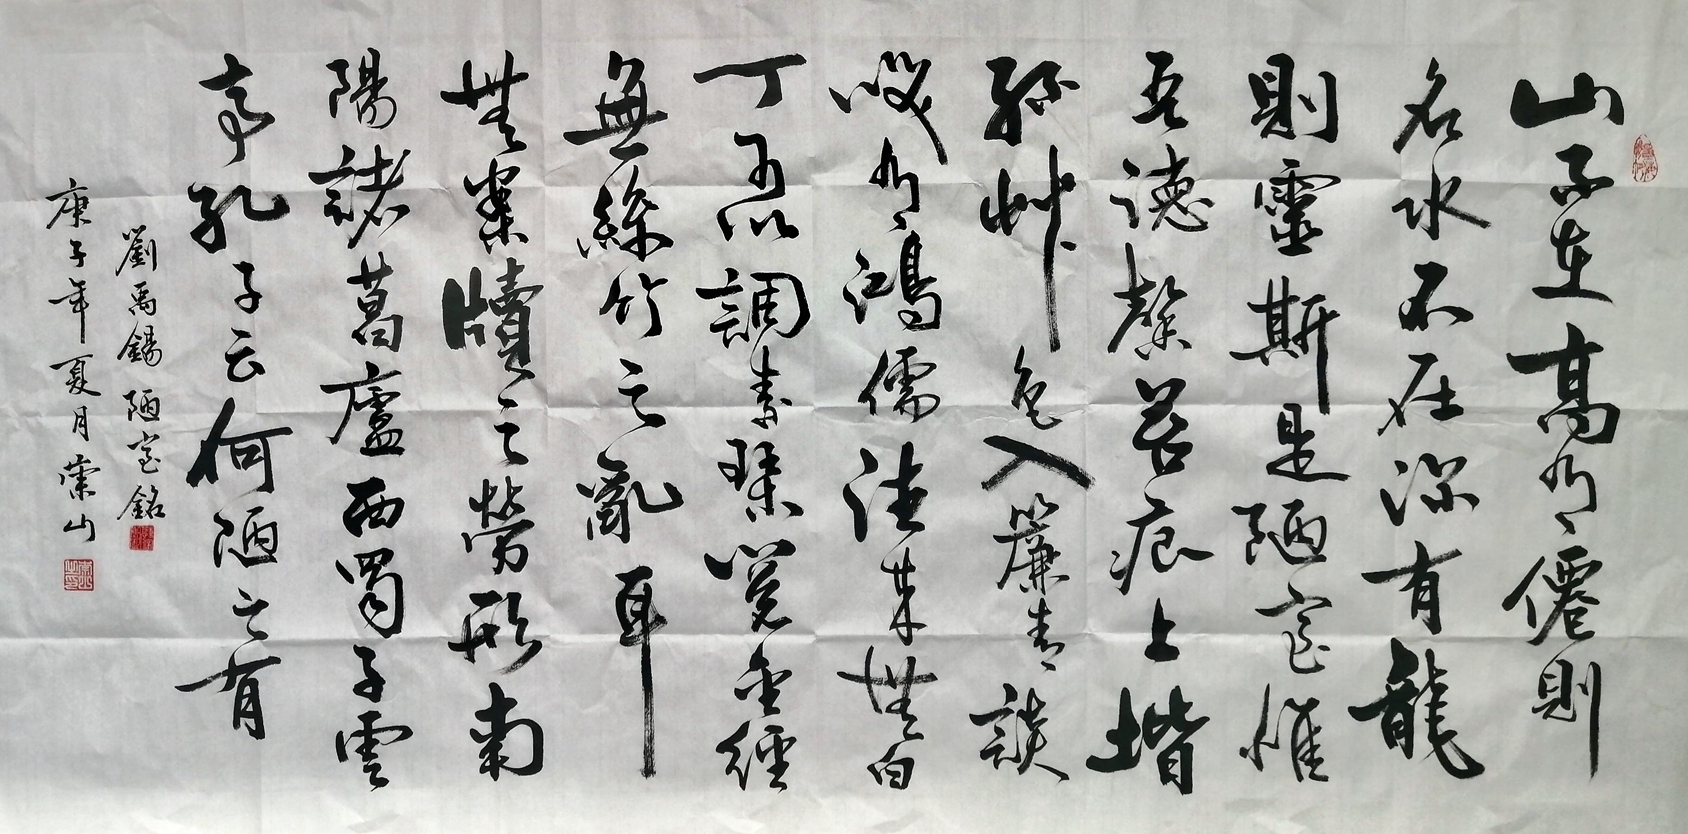 山不在高有僊則
名水不在深有龍
則靈斯是陋室惟
吾德馨苔痕上堦
綠艸色入簾青談
咲有鴻儒往來無白
丁可以調素琴閱金經
無絲竹之亂耳
無案牘之勞形南
陽諸葛廬西蜀子雲
亭孔子云何陋之有
劉禹錫陋室銘
庚子年夏月山